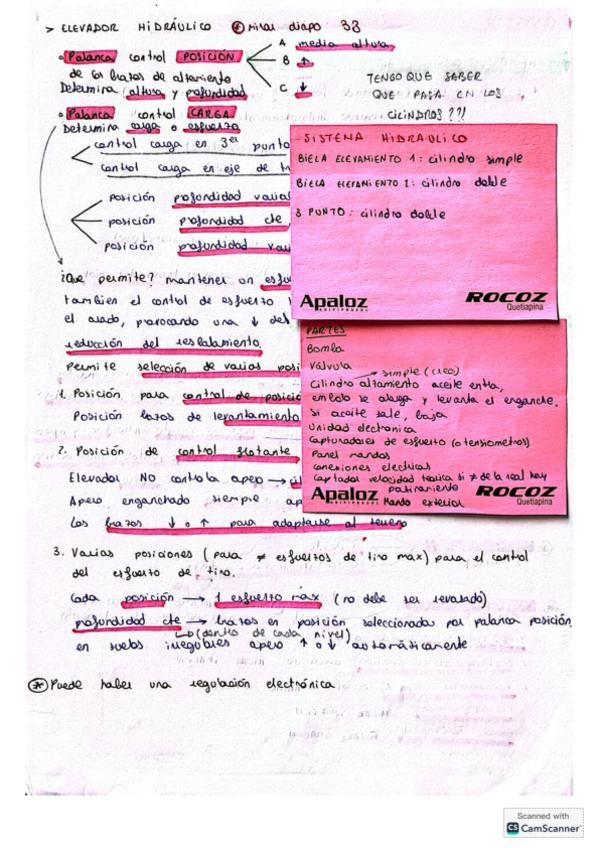 > ELEVADOR HIDRÁULICO * Mirar diapo 38
Palanca control POSICIÓN
A media altura
B ↑
C ↓
de los brazos de alzamiento
Determina altura y profundidad
TENGO QUE SABER
QUE PASA EN LOS
CILINDROS ??!
Palanca control CARGA
Determina carga o esfuerzo
control carga en 3er punto
control carga en eje de
posición profundidad
posición profundidad cte
posición profundidad
SISTEMA HIDRAULICO
BIELA ELEVAMIENTO 1: cilindro simple
BIELA ELEVAMIENTO 2: cilindro doble
3 PUNTO: cilindro doble
Apaloz
ARIPIPRAZOL
ROCOZ
Quetiapina
¿Que permite? mantener un
tambien el control de esfuerzo
el arado, provocando una ↓ del
reducción del resbalamiento.
Permite selección de varias
1. Posición para control de
Posición brazos de levantamiento
2. Posición de control flotante
Elevador NO controla apero →
Apero enganchado siempre
Los brazos ↓ o ↑ para adaptarse al terreno
PARTES
Bomba
Válvula
simple (creo)
Cilindro alzamiento aceite entra,
embolo se alarga y levanta el enganche.
Si aceite sale, baja
Unidad electronica
Capturadores de esfuerzo (o tensiometros)
Panel mandos
conexiones electricas
Captador velocidad teorica si ≠ de la real hay
patinamiento
Mando exterior
Apaloz
ARIPIPRAZOL
ROCOZ
Quetiapina
3. Varias posiciones (para ≠ esfuerzos de tiro max) para el control
del esfuerzo de tiro.
Cada posición → 1 esfuerzo máx (no debe ser rebasado)
profundidad cte → brazos en posición seleccionada por palanca posición
(dentro de cada nivel)
en suelos irregulares apero ↑ o ↓ automáticamente
* Puede haber una regulación electrónica
Scanned with
CS CamScanner